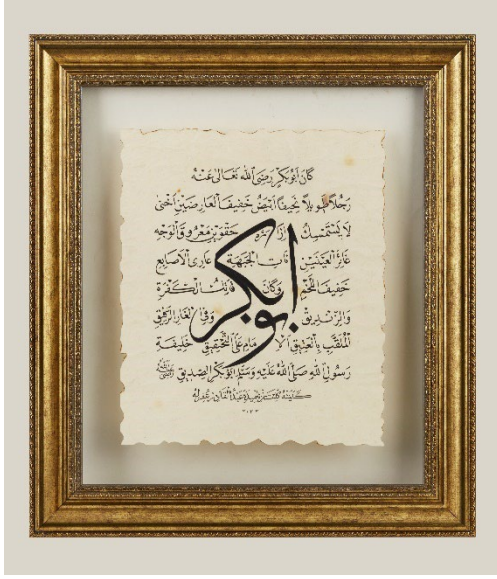 كَانَ أَبُو بَكْرٍ رَضِيَ اللهُ تَعَالَى عَنْهُ
رَجُلاً طَوِيلاً نَحِيفاً أَبْيَضَ خَفِيفَ الْعَارِضَيْنِ أَخْنَى
لَا يَسْتَمْسِكُ إِزَارُهُ حَقْوَيْهِ مَعْرُوقَ الْوَجْهِ
غَائِرَ الْعَيْنَيْنِ نَاتِئَ الْجَبْهَةِ عَارِيَ الْأَصَابِعِ
خَفِيفَ اللَّحْمِ وَكَانَ قَاتِلَ الْكَفَرَةِ
وَالزِّنْدِيقِ وَفِي الْغَارِ الرَّفِيقِ
الْمُلَقَّبُ بِالْعَتِيقِ الْإِمَامُ عَلَى التَّحْقِيقِ خَلِيفَةُ
رَسُولِ اللهِ صَلَّى اللهُ عَلَيْهِ وَسَلَّمَ أَبُو بَكْرٍ الصِّدِّيقُ
ابو بكر